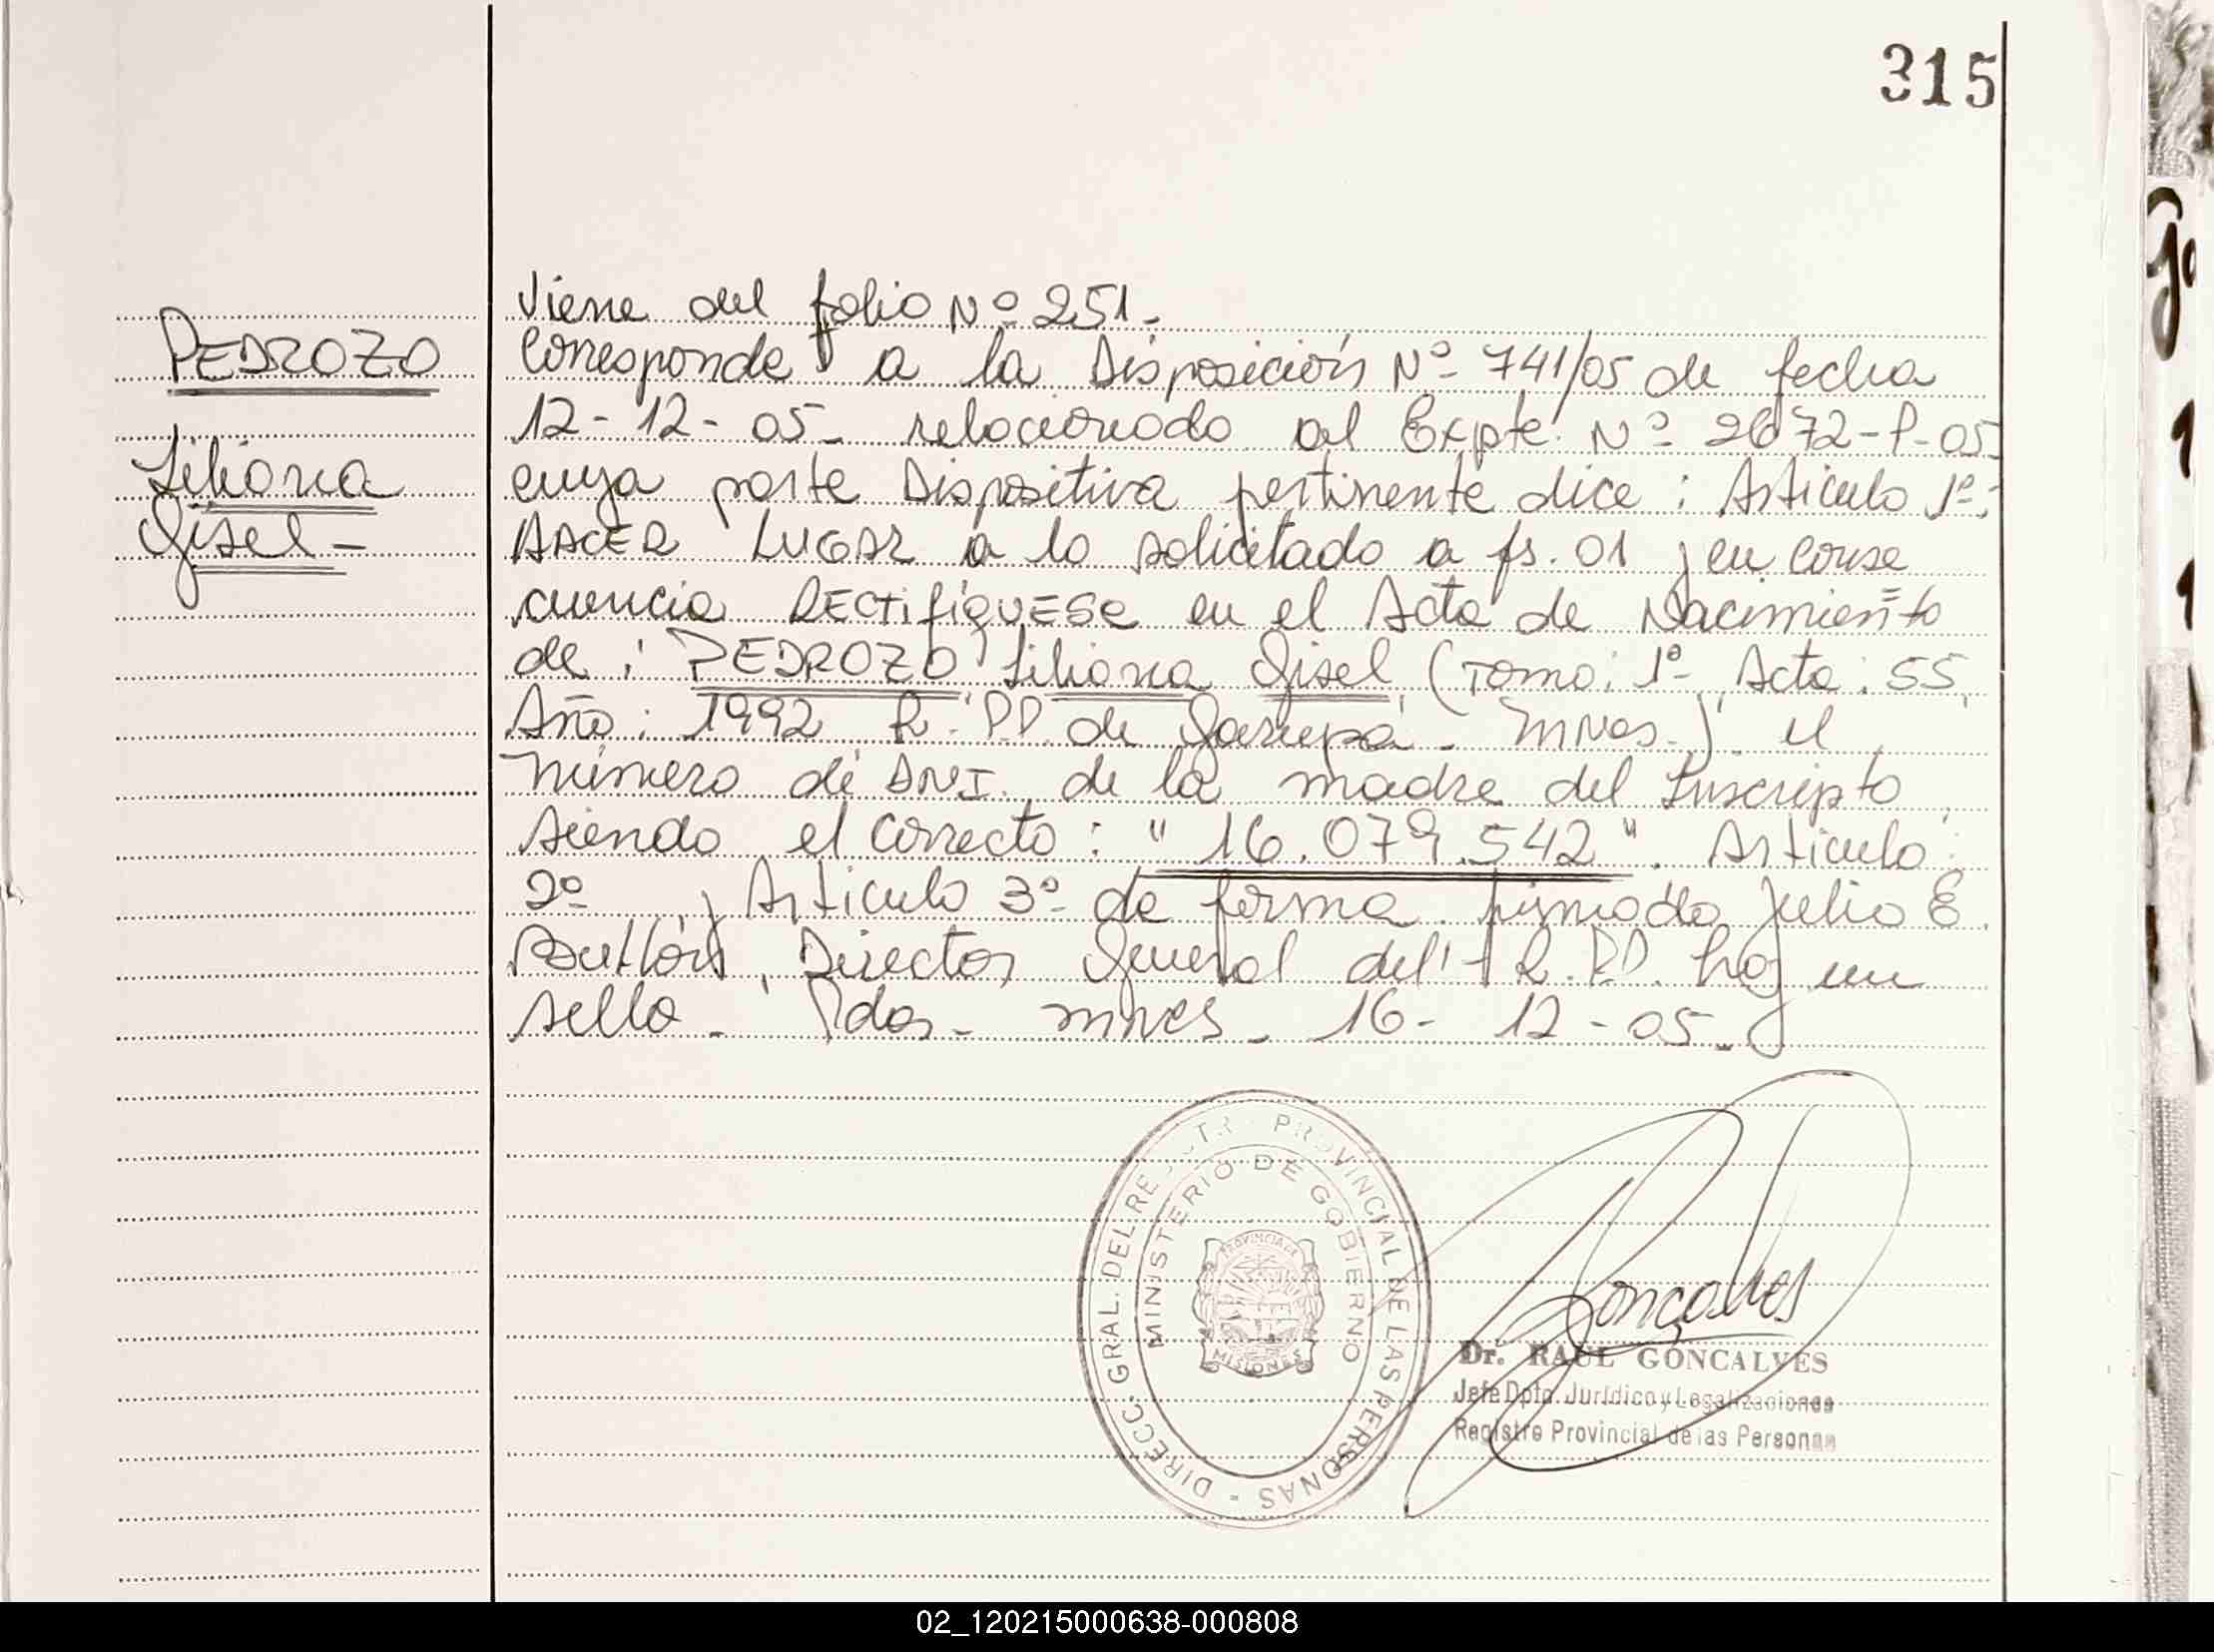 315
PEDROZO
Liliana
Gisel -
Viene del folio Nº 251.-
Corresponde a la Disposición Nº 741/05 de fecha
12-12-05- relacionado al Expte. Nº 2672-P-05
cuya parte Dispositiva pertinente dice: Articulo 1º:
HACER LUGAR a lo solicitado a fs. 01 y en conse
cuencia RECTIFÍQUESE en el Acta de Nacimiento
de: PEDROZO Liliana Gisel (Tomo: 1º Acta: 55,
Año: 1992 R.P.P. de Garupá - Mnes.) el
Número de DNI. de la madre del Inscripto,
siendo el correcto: "16.079.542". Articulo
2º y Articulo 3º de forma. Firmado Julio E.
Director General del R.P.P. hay un
sello - Pdas - Mnes - 16 - 12 - 05.-
DIRECC. GRAL. DEL REGISTR. PROVINCIAL DE LAS PERSONAS -
MINISTERIO DE GOBIERNO
PROVINCIA DE
MISIONES
Gonçalves
Dr. RAUL GONCALVES
Jefe Dpto. Jurídico y Legalizaciones
Registro Provincial de las Personas
02_120215000638-000808